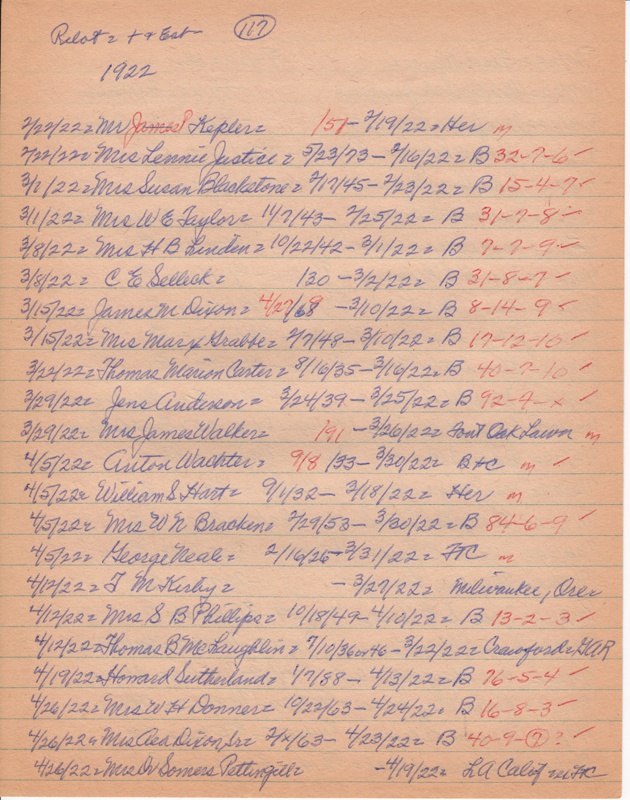 Pilot = + & Est- 117
1922
2/22/22 = Mr James P Kepler = /51 - 2/19/22 = Her m
2/22/22 = Mrs Lennie Justice = 5/23/73 - 2/16/22 = B 32-7-6 ✓
3/1/22 = Mrs Susan Blackstone = 2/17/45 - 2/23/22 = B 15-4-7 ✓
3/1/22 = Mrs W E Taylor = 11/7/43 - 2/25/22 = B 31-7-8 ✓
3/8/22 = Mrs H B Linden = 10/22/42 - 3/1/22 = B 7-7-9 ✓
3/8/22 = C E Selleck = 130 - 3/2/22 = B 31-8-7 ✓
3/15/22 = James M Dixon = 4/27/68 - 3/10/22 = B 8-14-9 ✓
3/15/22 = Mrs Mary Grabbe = 2/7/48 - 3/10/22 = B 17-12-10 ✓
3/22/22 = Thomas Marion Carter = 8/16/35 - 3/16/22 = B 40-7-10 ✓
3/29/22 = Jens Anderson = 3/24/39 - 3/25/22 = B 92-4-x ✓
3/29/22 = Mrs James Walker = /91 - 3/26/22 = Font Oak Lawn m
4/5/22 = Anton Wachter = 9/8/33 - 3/30/22 = B & C m ✓
4/5/22 = William S Hart = 9/1/32 - 3/18/22 = Her m
4/5/22 = Mrs W N Bracken = 7/29/53 - 3/30/22 = B 84-6-9 ✓
4/5/22 = George Neale = 2/16/26 - 3/31/22 = FC m
4/12/22 = F M Kirby = - 3/27/22 = Milwaukee, Ore =
4/12/22 = Mrs S B Phillips = 10/18/49 - 4/10/22 = B 13-2-3 ✓
4/12/22 = Thomas B McLaughlin = 7/10/36 or 46 - 3/22/22 = Crawford = GAR
4/19/22 = Howard Sutherland = 1/7/88 - 4/13/22 = B 76-5-4 ✓
4/26/22 = Mrs W H Donner = 10/22/63 - 4/24/22 = B 16-8-3 ✓
4/26/22 = Mrs Asa Dixon Sr = 2/x/63 - 4/23/22 = B 40-9-7? ✓
4/26/22 = Mrs Dr Somers Pettingill = - 4/19/22 = LA Calif = FC